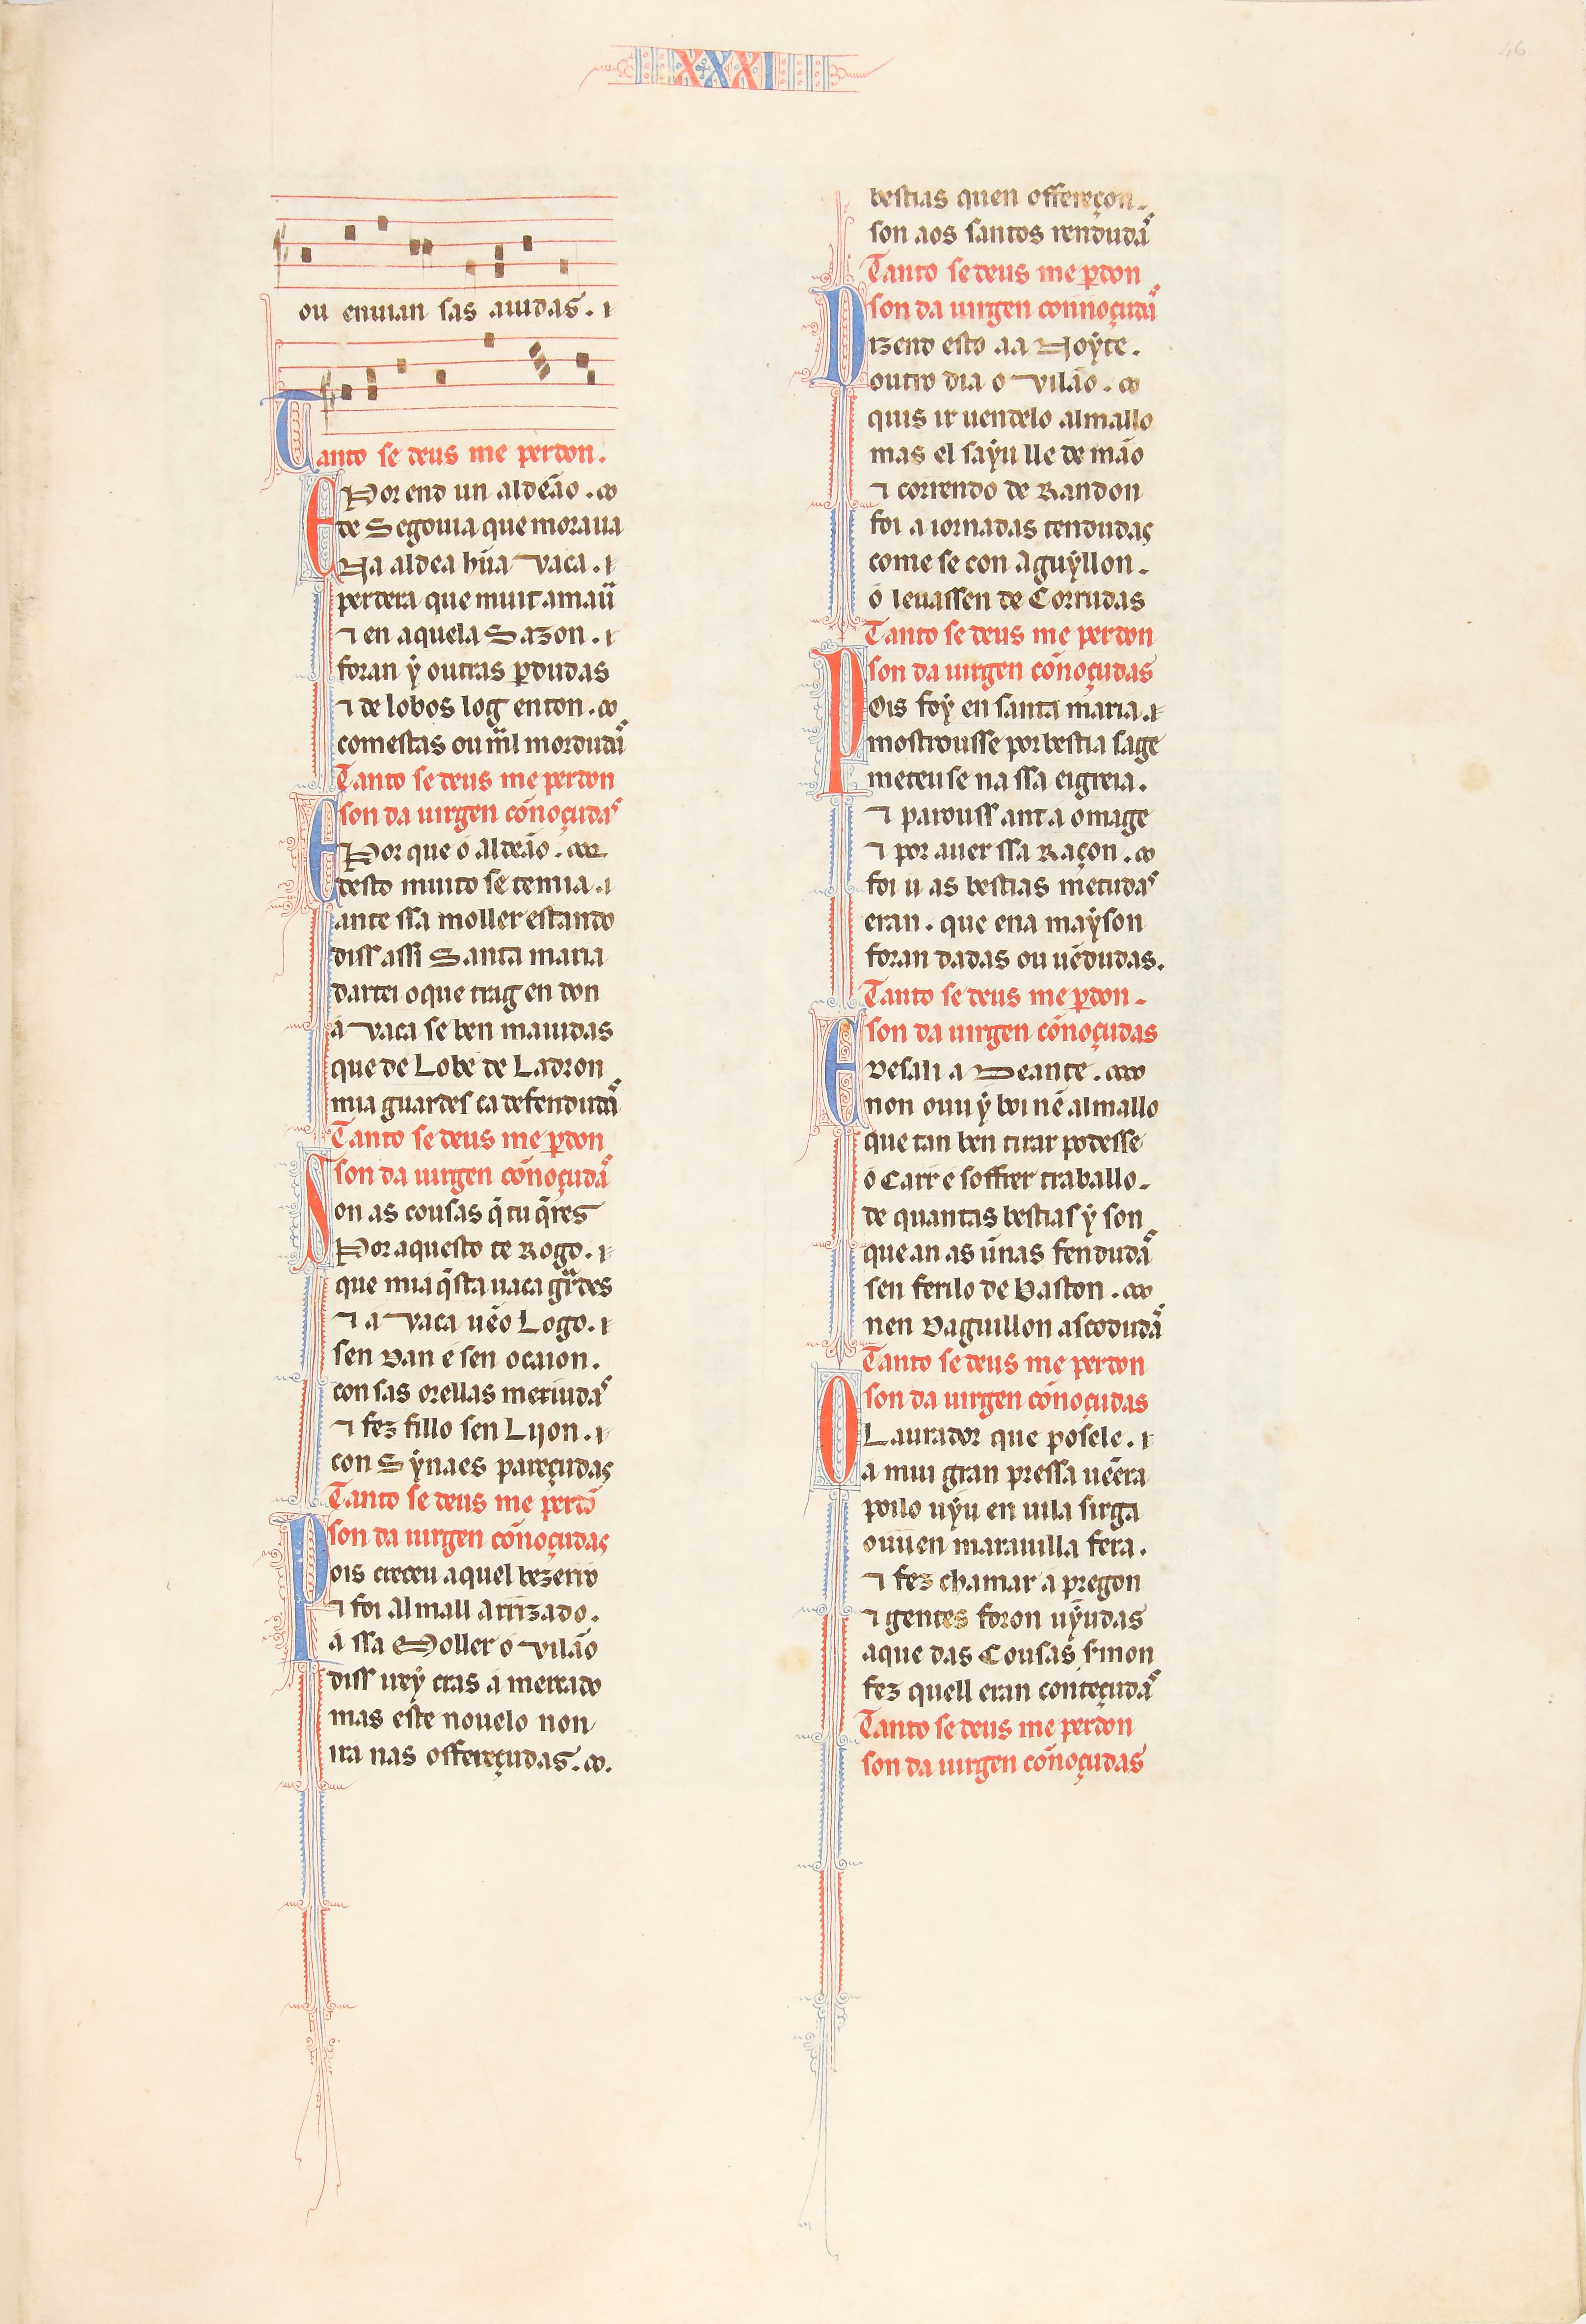 XXXI
46
ou enuian sas aiudas.
Tanto se deus me perdon.
E Por end un aldeão.
de Segouia que moraua
Na aldea hũa vaca.
perdera que muit amaũ
⁊ en aquela Sazon.
foran ẏ outras ꝑdudas
⁊ de lobos log enton.
comestas ou mal mordudas
Tanto se deus me perdon
son da uirgen cõnoçudas
E Por que o aldeão.
desto muito se temia.
ante ssa moller estando
diss assi Santa maria
dar tei o que trag en don
a vaca se ben maiudas
que de Lobe de Ladron
mia guardes ca defendudas
Tanto se deus me ꝑdon
son da uirgen cõnoçudas
Non as cousas q̃ tu q̃res
Por aquesto te Rogo.
que mia q̃sta uaca guardes
⁊ a vaca uẽo Logo.
sen dan e sen ocaion.
con sas orellas merjudas
⁊ fez fillo sen Lijon.
con Sẏnaes pareçudas
Tanto se deus me perdõ
son da uirgen cõnoçudas
Pois creceu aquel bezerro
⁊ foi al mall arrizado.
a ssa Moller o vilão
diss ireẏ cras a mercado
mas este nouelo non
ira nas offereçudas.
bestias quen offereçon.
son aos santos rendudas
Tanto se deus me ꝑdon
son da uirgen connoçudas
Dizend esto aa Noẏte.
outro dia o vilão.
quis ir uendelo al mallo
mas el saẏu lle de mão
⁊ correndo de Randon
foi a iornadas tendudas
come se con aguẏllon.
o leuassen de Corrudas
Tanto se deus me perdon
son da uirgen cõnoçudas
Pois foẏ en santa maria.
mostrousse por bestia sage
meteu se na ssa eigreia.
⁊ parouss ant a omage
⁊ por auer ssa Raçon.
foi u as bestias metudas
eran. que ena maẏson
foran dadas ou uẽdudas.
Tanto se deus me ꝑdon.
son da uirgen cõnoçudas
E desali a Deante.
non ouu ẏ boi nẽ almallo
que tan ben tirar podesse
o Carr e soffrer traballo.
de quantas bestias ẏ son
que an as ũnas fendudas
sen ferilo de Baston.
nen Daguillon ascodudas
Tanto se deus me perdon
son da uirgen cõnoçudas
O Laurador que pos ele.
a mui gran pressa uẽera
poilo uẏu en uila sirga
ouuen marauilla fera.
⁊ fez chamar a pregon
⁊ gentes foron uẏudas
aque das Cousas s̃mon
fez quell eran conteçudas
Tanto se deus me perdon
son da uirgen cõnoçudas